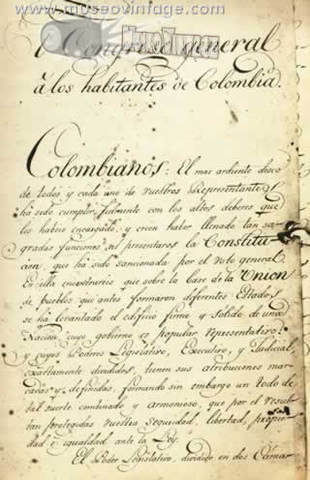 www.museovintage.com
El Congreso general
á los habitantes de Colombia.
Colombianos: El mas ardiente deseo
de todos y cada uno de vuestros Representantes
ha sido cumplir fielmente con los altos deberes que
les habeis encargado, y creen haber llenado tan sa-
gradas funciones al presentaros la Constitu-
cion que ha sido sancionada por el voto general
En ella encontrareis que sobre la base de la Union
de pueblos que antes formaron diferentes Estados,
se ha levantado el edificio firme y solido de una
Nacion cuyo gobierno es popular representativo;
y cuyos Poderes Legislativo, Executivo, y Judicial,
exactamente divididos, tienen sus atribuciones mar-
cadas y definidas, formando sin embargo un todo de
tal suerte combinado y armonioso, que por el resultan
protegidas vuestra seguridad, libertad, propie-
dad é igualdad ante la Ley.
El Poder Legislativo, dividido en dos Camar-